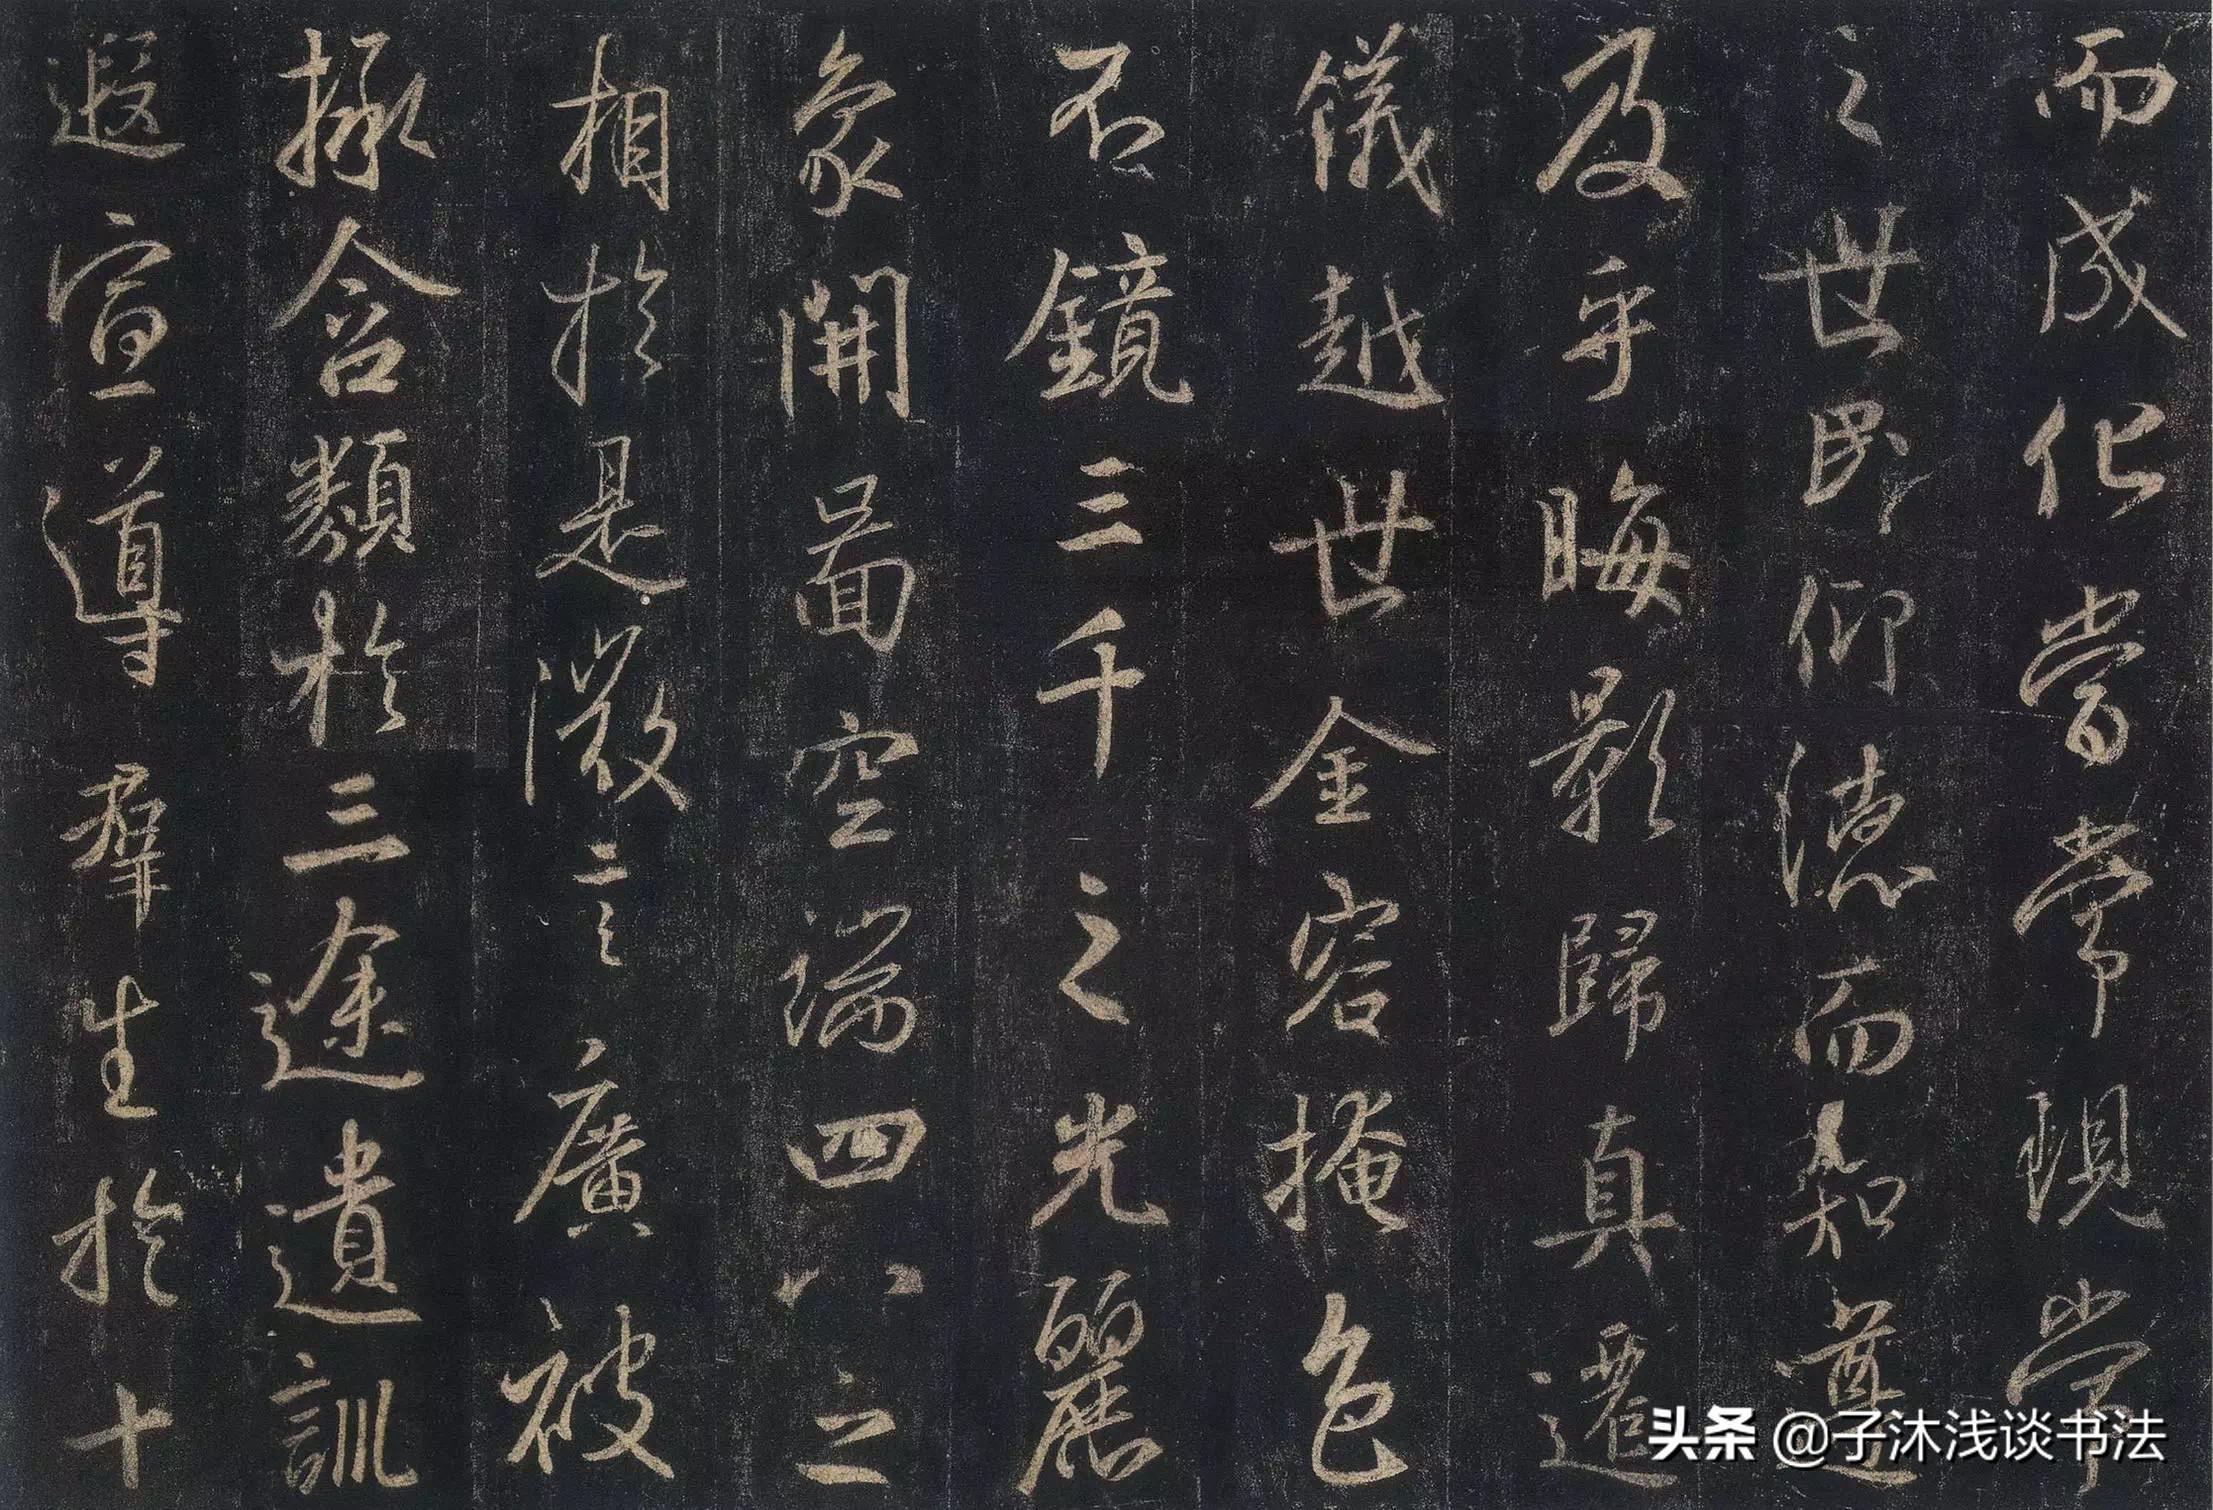 而成化當常現常
之世民仰德而知遵
及乎晦影歸真遷
儀越世金容掩色
不鏡三千之光麗
象開圖空端四八之
相於是微言廣被
拯含類於三途遺訓
遐宣導群生於十
头条 @子沐浅谈书法